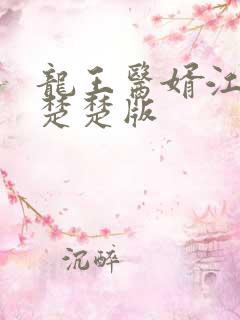 龍王醫婿江
楚楚版
沉醉